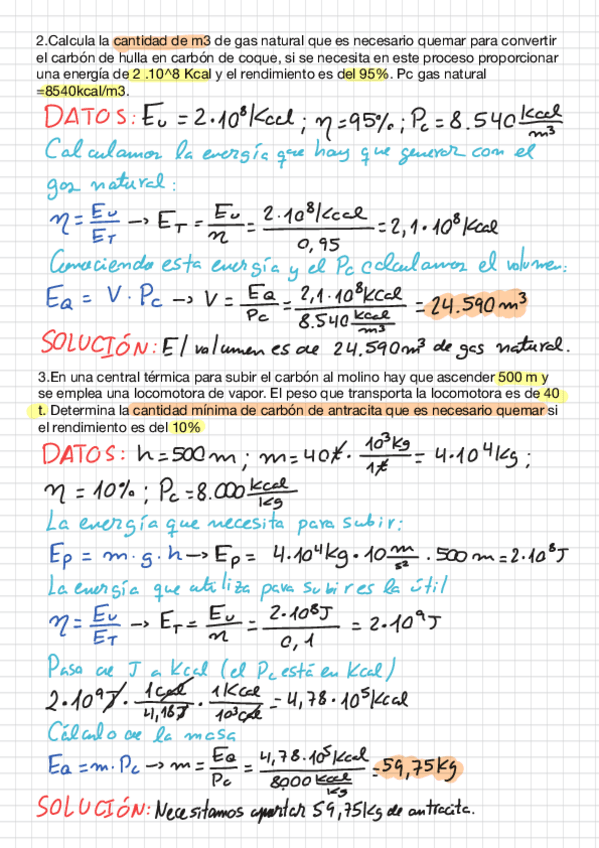 2.Calcula la cantidad de m3 de gas natural que es necesario quemar para convertir
el carbón de hulla en carbón de coque, si se necesita en este proceso proporcionar
una energía de 2 .10^8 Kcal y el rendimiento es del 95%. Pc gas natural
=8540kcal/m3.
DATOS: Eu = 2·10⁸ Kcal ; η = 95% ; Pc = 8.540 Kcal/m³
Calculamos la energía que hay que generar con el
gas natural:
η = Eu/ET → ET = Eu/η = 2·10⁸ Kcal/0,95 = 2,1·10⁸ Kcal
Conociendo esta energía y el Pc calculamos el volumen:
EQ = V · Pc → V = EQ/Pc = 2,1·10⁸ Kcal/8.540 Kcal/m³ = 24.590 m³
SOLUCIÓN: El volumen es de 24.590 m³ de gas natural.
3.En una central térmica para subir el carbón al molino hay que ascender 500 m y
se emplea una locomotora de vapor. El peso que transporta la locomotora es de 40
t. Determina la cantidad mínima de carbón de antracita que es necesario quemar si
el rendimiento es del 10%
DATOS: h = 500 m ; m = 40 t · 10³ Kg/1 t = 4·10⁴ Kg ;
η = 10% ; Pc = 8.000 Kcal/Kg
La energía que necesita para subir:
Ep = m·g·h → Ep = 4·10⁴ Kg · 10 m/s² · 500 m = 2·10⁸ J
La energía que utiliza para subir es la útil
η = Eu/ET → ET = Eu/η = 2·10⁸ J/0,1 = 2·10⁹ J
Paso de J a Kcal (el Pc está en Kcal)
2·10⁹ J · 1 cal/4,18 J · 1 Kcal/10³ cal = 4,78·10⁵ Kcal
Cálculo de la masa
EQ = m·Pc → m = EQ/Pc = 4,78·10⁵ Kcal/8000 Kcal/Kg = 59,75 Kg
SOLUCIÓN: Necesitamos aportar 59,75 Kg de antracita.